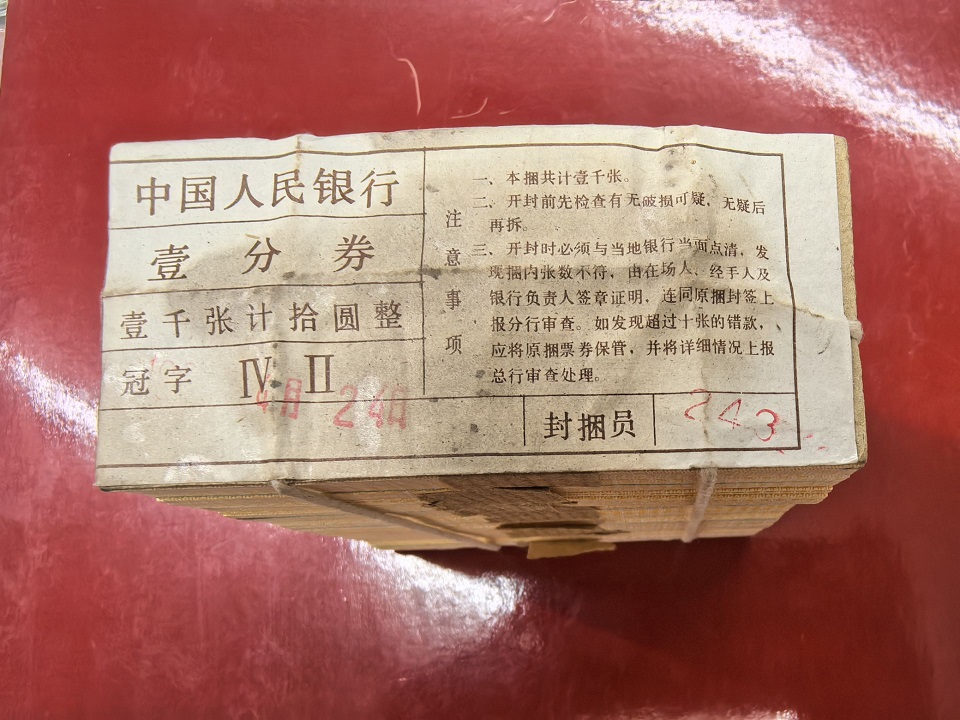 中国人民银行
壹分券
壹千张计拾圆整
冠字 Ⅳ Ⅱ
4月 24日
注意事项
一、本捆共计壹千张。
二、开封前先检查有无破损可疑,无疑后
再拆。
三、开封时必须与当地银行当面点清,发
现捆内张数不待,由在场人、经手人及
银行负责人签章证明,连同原捆封签上
报分行审查。如发现超过十张的错款,
应将原捆票券保管,并将详细情况上报
总行审查处理。
封捆员 243